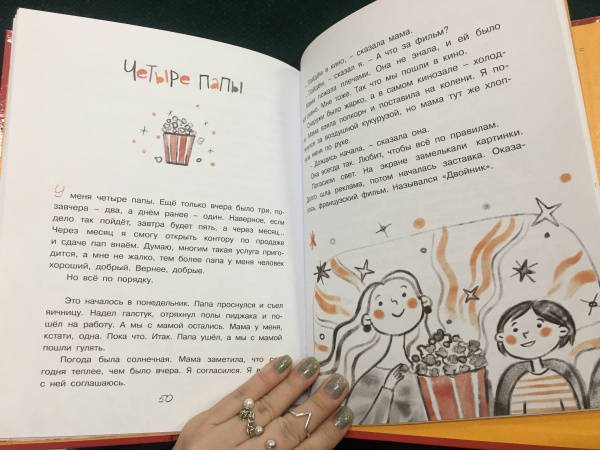 Четыре папы
У меня четыре папы. Ещё только вчера было три, по-
завчера – два, а днём ранее – один. Наверное, если
дело так пойдёт, завтра будет пять, а через месяц...
Через месяц я смогу открыть контору по продаже
и сдаче пап внаём. Думаю, многим такая услуга приго-
дится, а мне не жалко, тем более папа у меня человек
хороший, добрый. Вернее, добрые.
Но всё по порядку.
Это началось в понедельник. Папа проснулся и съел
яичницу. Надел галстук, отряхнул полы пиджака и по-
шёл на работу. А мы с мамой остались. Мама у меня,
кстати, одна. Пока что. Итак. Папа ушёл, а мы с мамой
пошли гулять.
Погода была солнечная. Мама заметила, что
годня теплее, чем было вчера. Я согласился. Я
с ней соглашаюсь.
50
в кино, – сказала мама.
– сказал я. – А что за фильм?
пожала плечами. Она не знала, и ей было
Мне тоже. Так что мы пошли в кино.
было жарко, а в самом кинозале – холод-
Мама взяла попкорн и поставила на колени. Я по-
за воздушной кукурузой, но мама тут же хлоп-
меня по руке.
– Дождись начала, – сказала она.
Она всегда так. Любит, чтобы всё по правилам.
Погасили свет. На экране замелькали картинки.
Долго шла реклама, потом началась заставка. Оказа-
лось, французский фильм. Назывался «Двойник».